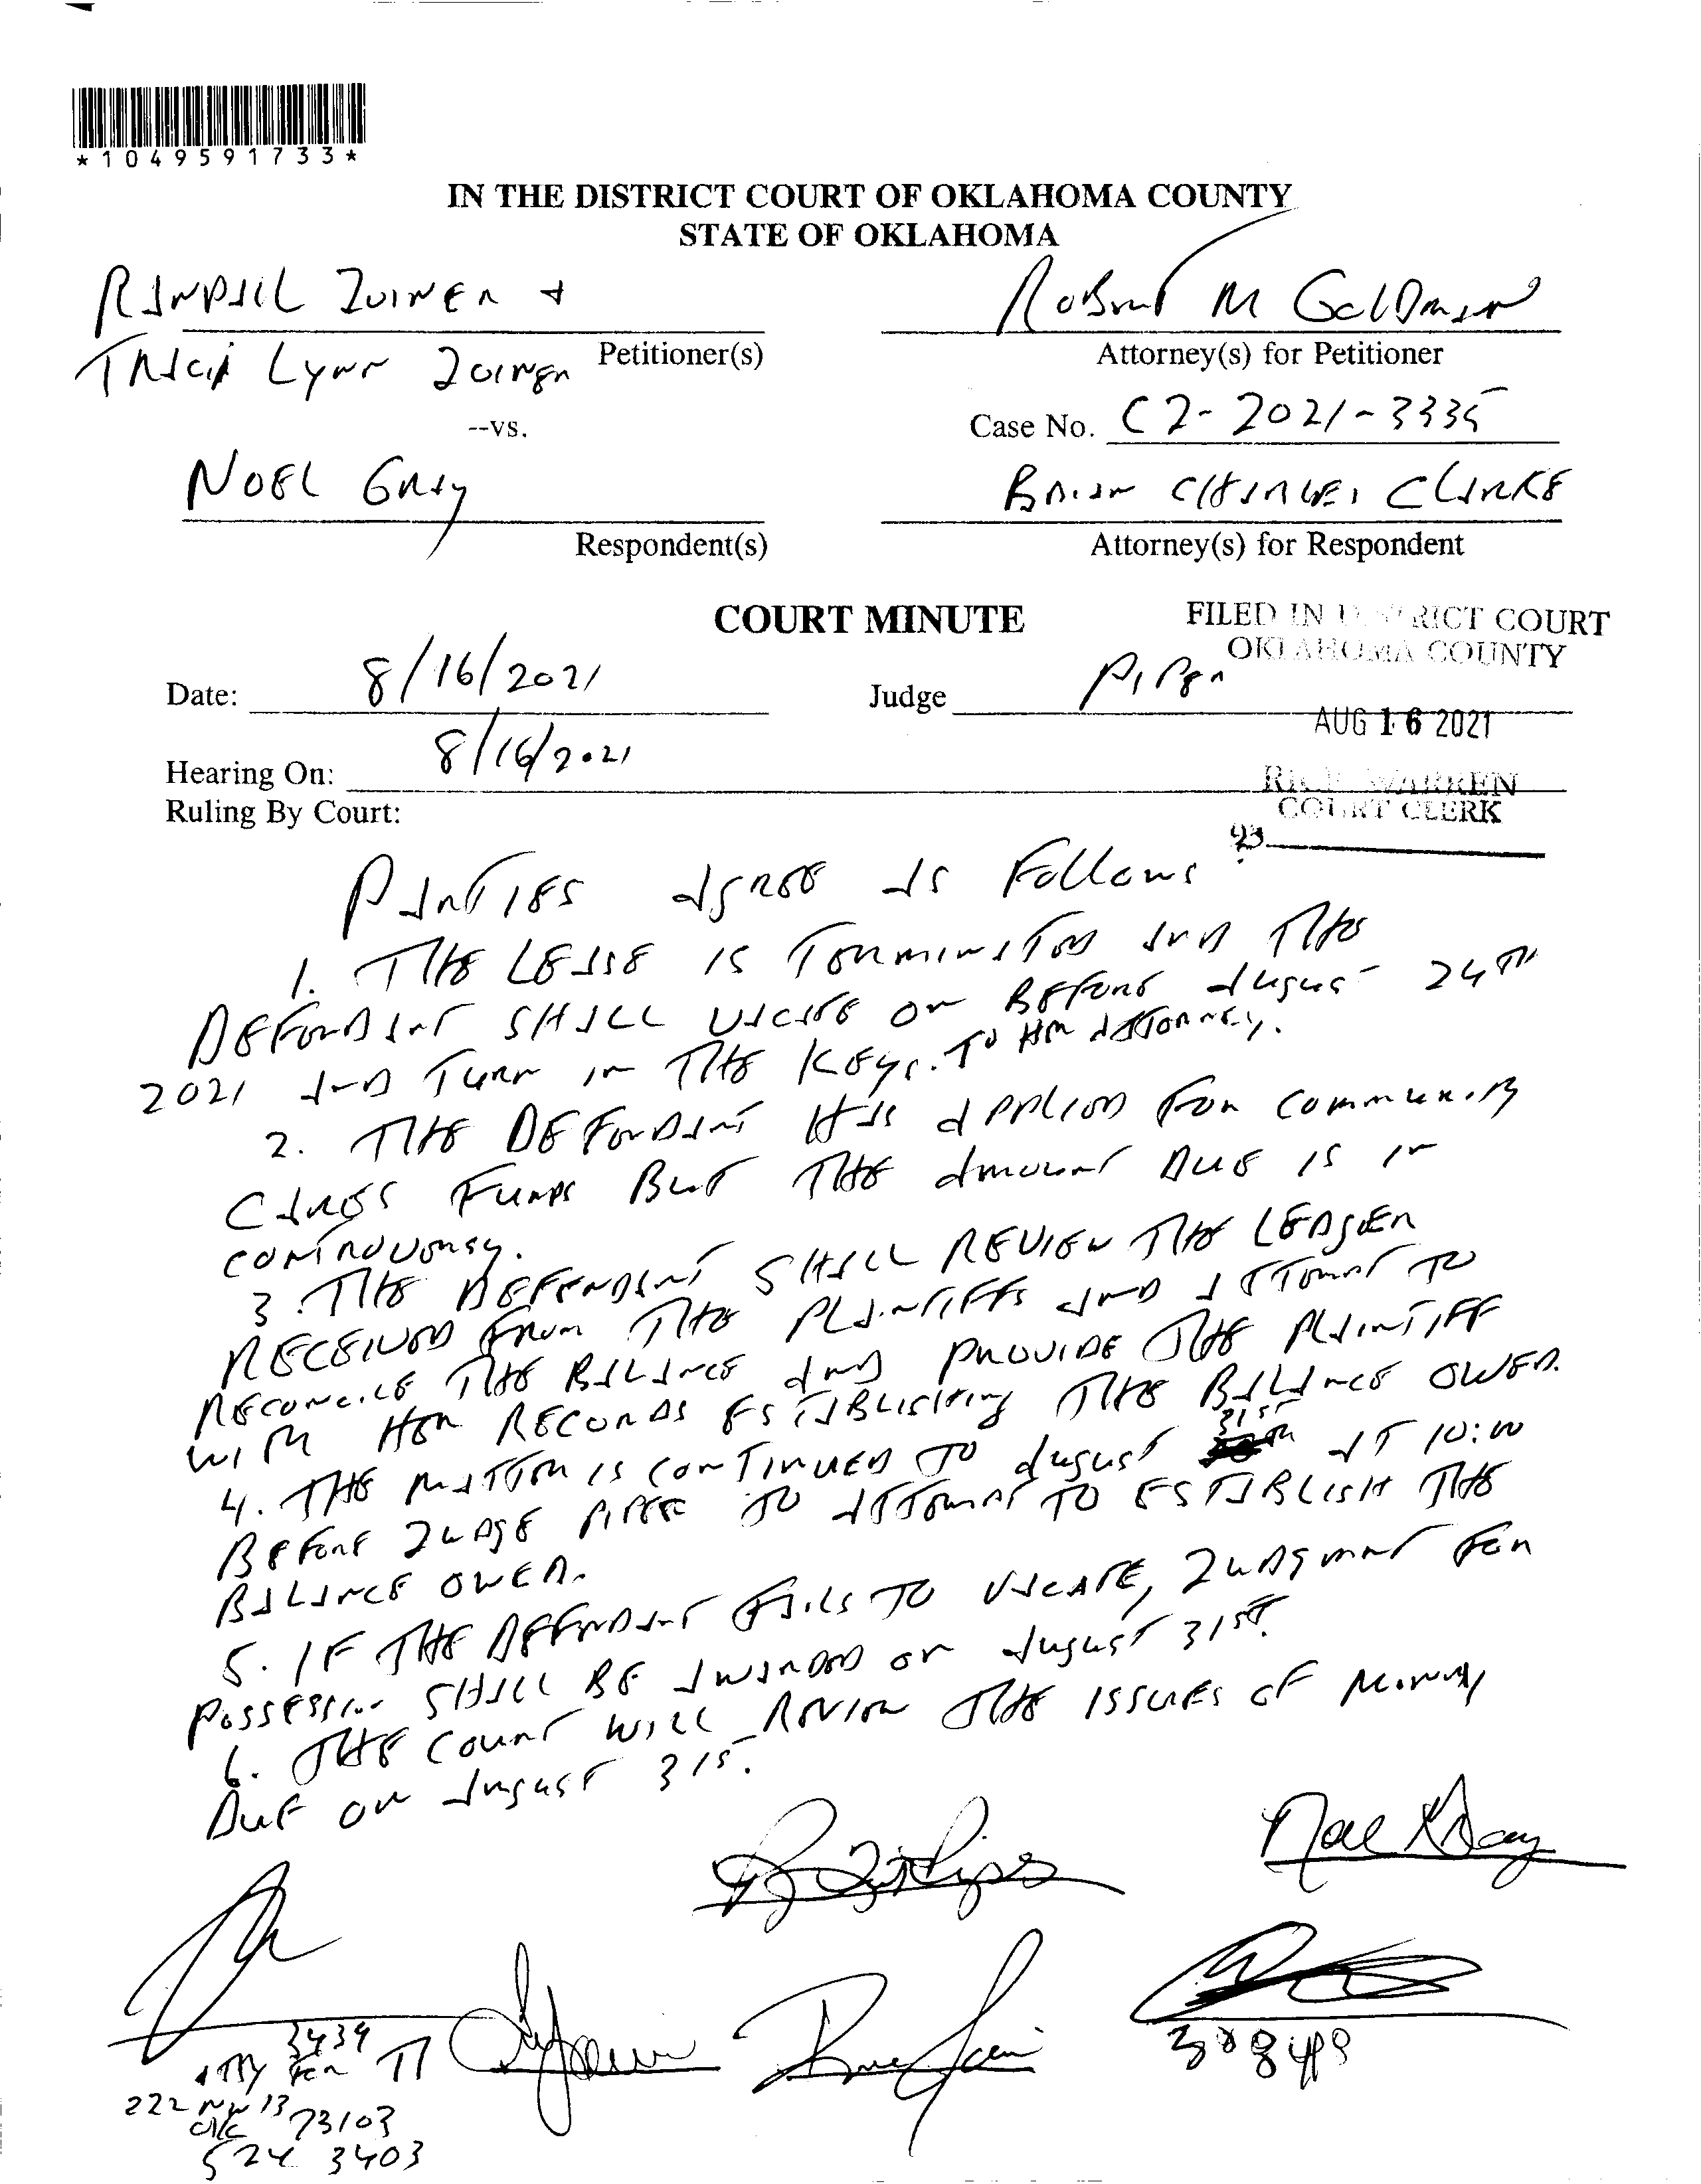 *1049591733*
IN THE DISTRICT COURT OF OKLAHOMA COUNTY
STATE OF OKLAHOMA
RANDALL JOINER +
TRICIA LYNN JOINER Petitioner(s)
ROBERT M GOLDMAN
Attorney(s) for Petitioner
--vs.
Case No. CJ-2021-3335
NOEL GRAY
Respondent(s)
BRIAN CHARLES CLARKE
Attorney(s) for Respondent
COURT MINUTE
FILED IN DISTRICT COURT
OKLAHOMA COUNTY
Date: 8/16/2021
Judge PIPER
AUG 16 2021
Hearing On: 8/16/2021
RICK WARREN
COURT CLERK
Ruling By Court:
93
PARTIES AGREE AS FOLLOWS
1. THE LEASE IS TERMINATED AND THE
DEFENDANT SHALL VACATE ON BEFORE AUGUST 24TH
2021 AND TURN IN THE KEYS. TO HER ATTORNEY.
2. THE DEFENDANT HAS APPLIED FOR COMMUNITY
CARES FUNDS BUT THE AMOUNT DUE IS IN
CONTROVERSY.
3. THE DEFENDANT SHALL REVIEW THE LEDGER
RECEIVED FROM THE PLAINTIFFS AND ATTEMPT TO
RECONCILE THE BALANCE AND PROVIDE THE PLAINTIFF
WITH HER RECORDS ESTABLISHING THE BALANCE OWED.
4. THE MATTER IS CONTINUED TO AUGUST 31ST AT 10:00
BEFORE JUDGE PIPER TO ATTEMPT TO ESTABLISH THE
BALANCE OWED.
5. IF THE DEFENDANT FAILS TO VACATE, JUDGMENT FOR
POSSESSION SHALL BE AWARDED ON AUGUST 31ST.
6. THE COURT WILL REVIEW THE ISSUES OF MONEY
DUE ON AUGUST 31ST.
Noel Gray
3439
ATTY FOR π
222 NW 13
OKC 73103
524 3403